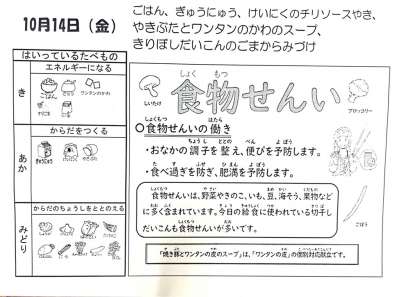 10月14日（金）
ごはん、ぎゅうにゅう、けいにくのチリソースやき、
やきぶたとワンタンのかわのスープ、
きりぼしだいこんのごまからみづけ
はいっているたべもの
き
エネルギーになる
ごはん
ワンタンのかわ
あか
からだをつくる
ぎゅうにゅう
みどり
からだのちょうしをととのえる
しいたけ
食物せんい
しょくもつ
ブロッコリー
○食物せんいの働き
しょくもつ はたら
・おなかの調子を整え、便びを予防します。
ちょうし ととの べん よぼう
・食べ過ぎを防ぎ、肥満を予防します。
た す ふせ ひまん よぼう
食物せんいは、野菜やきのこ、いも、豆、海そう、果物など
に多く含まれています。今日の給食に使われている切干し
だいこんも食物せんいが多いです。
ごぼう
「焼き豚とワンタンの皮のスープ」は、「ワンタンの皮」の個別対応献立です。